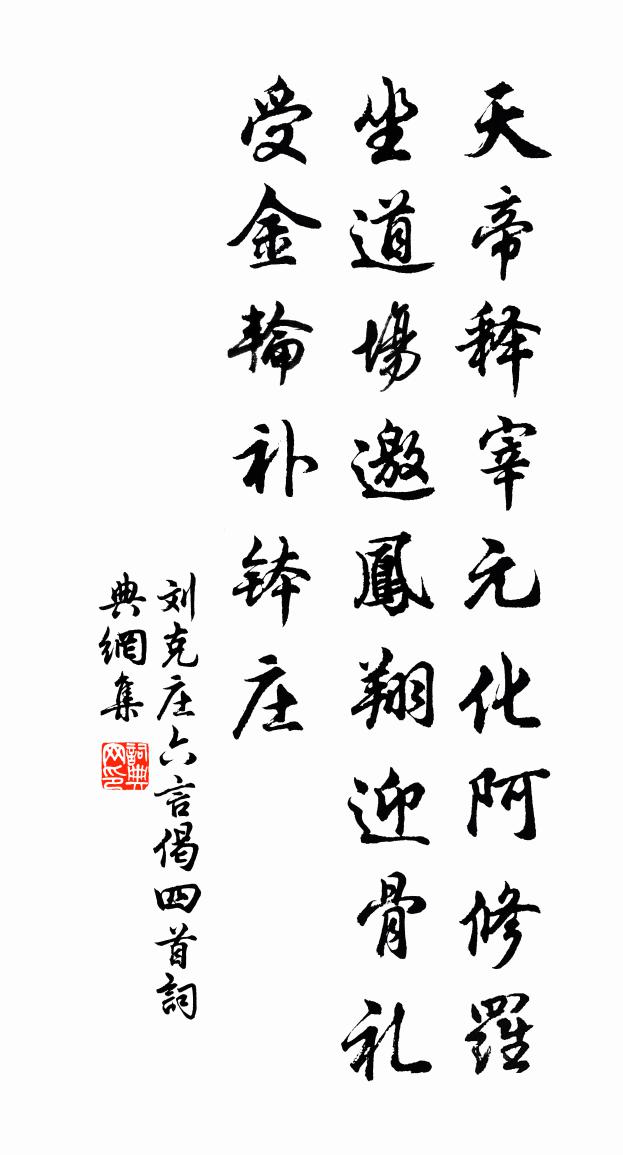 天帝释宰元化阿修羅
坐道場邀鳳翔迎骨礼
受金輪补钵庄
刘克庄六言偈四首詞
典網集
詞典网印